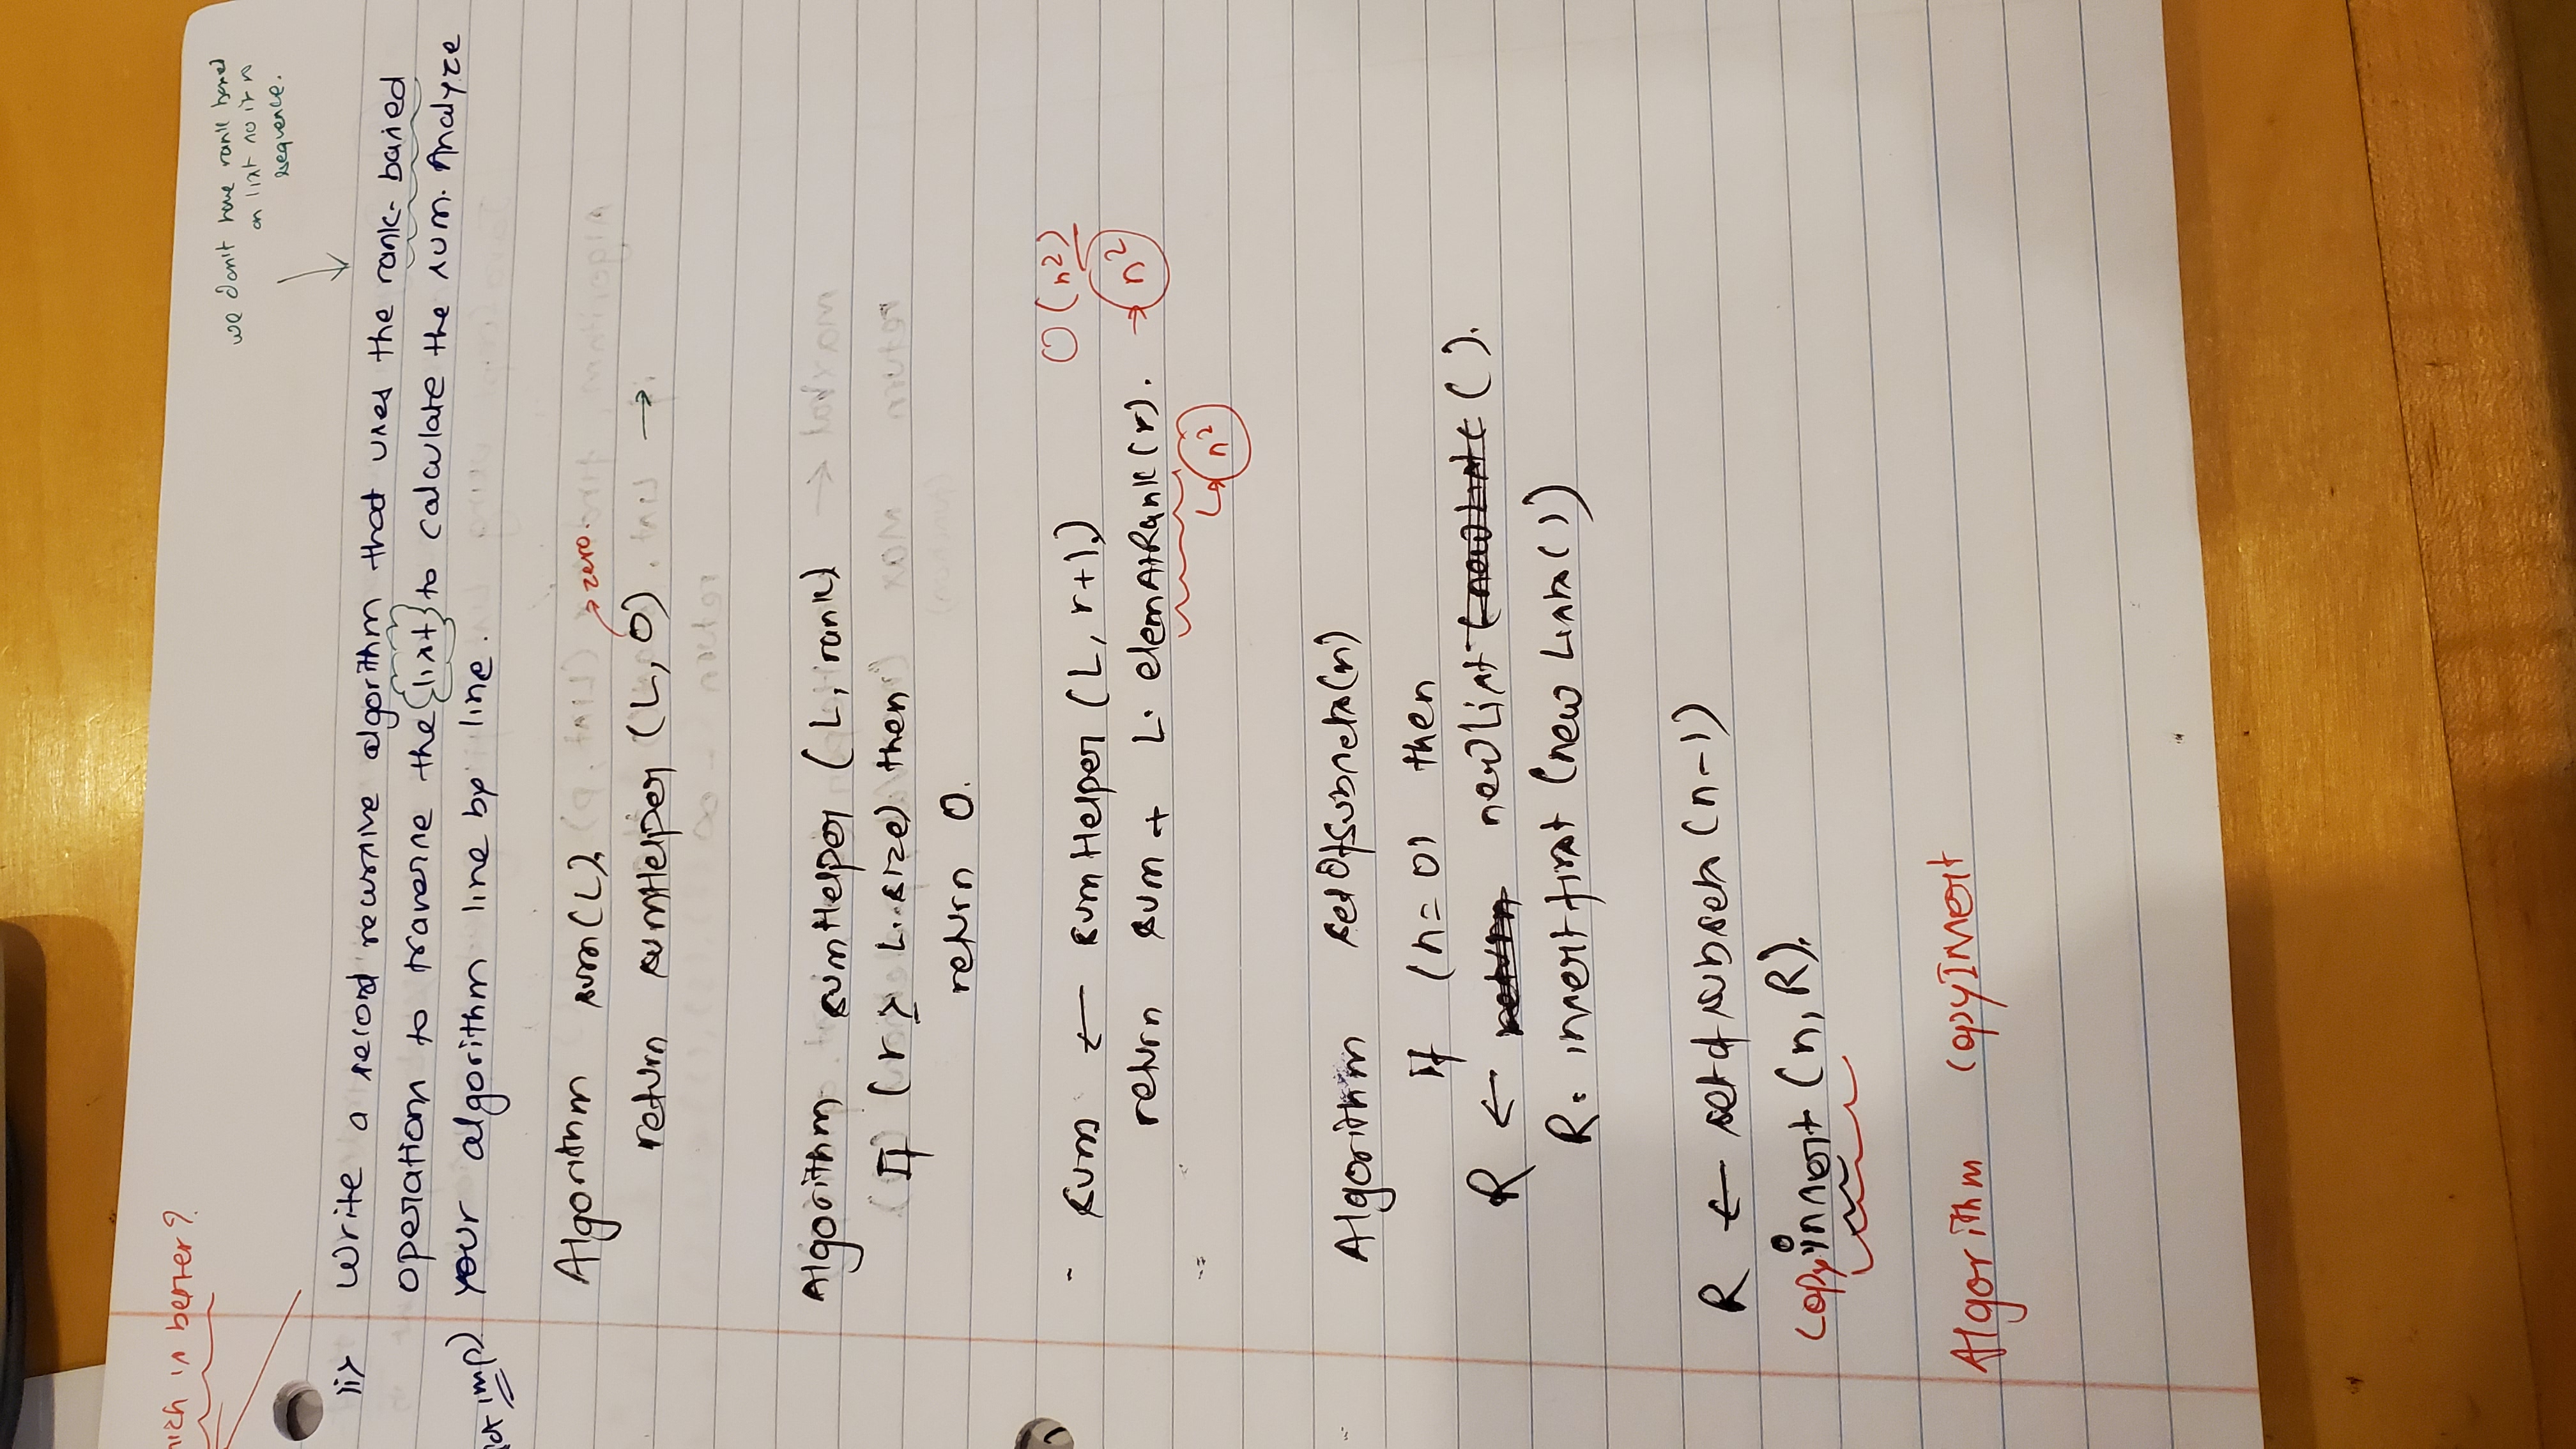 in better?
we don't have rank based
on list so it is
sequence.
ii> Write a second recursive algorithm that uses the rank-based
operations to traverse the list to calculate the sum. Analyze
imp) your algorithm line by line.
Algorithm sum(L)
→ zero.
return sumHelper (L, 0) →
Algorithm sumHelper (L, rank)
If (r ≥ L.size) then
return 0.
O(n2)
- sum ← sumHelper (L, r+1)
return sum + L. elemAtRank(r). → n2
↳ n2
Algorithm setOfSubsets(n)
If (n=0) then
R ← return newList (newList( ().
R. insertfirst (new Lists())
R ← setofsubsets (n-1)
copyinsert (n, R).
Algorithm copyInsert